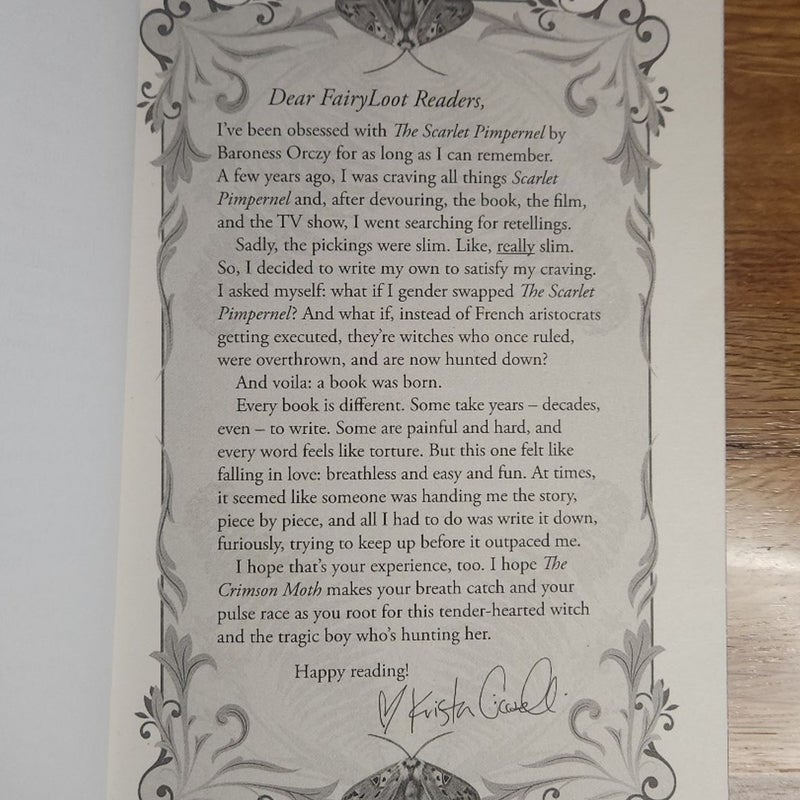 Dear FairyLoot Readers,
I've been obsessed with The Scarlet Pimpernel by
Baroness Orczy for as long as I can remember.
A few years ago, I was craving all things Scarlet
Pimpernel and, after devouring, the book, the film,
and the TV show, I went searching for retellings.
Sadly, the pickings were slim. Like, really slim.
So, I decided to write my own to satisfy my craving.
I asked myself: what if I gender swapped The Scarlet
Pimpernel? And what if, instead of French aristocrats
getting executed, they're witches who once ruled,
were overthrown, and are now hunted down?
And voila: a book was born.
Every book is different. Some take years – decades,
even – to write. Some are painful and hard, and
every word feels like torture. But this one felt like
falling in love: breathless and easy and fun. At times,
it seemed like someone was handing me the story,
piece by piece, and all I had to do was write it down,
furiously, trying to keep up before it outpaced me.
I hope that's your experience, too. I hope The
Crimson Moth makes your breath catch and your
pulse race as you root for this tender-hearted witch
and the tragic boy who's hunting her.
Happy reading!
♡ Kristen